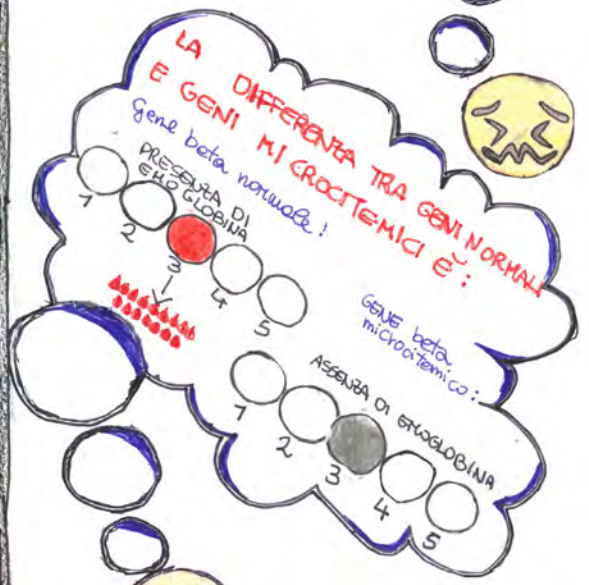 LA DIFFERENZA TRA GENI NORMALI
E GENI MICROCITEMICI È:
Gene beta normale!
PRESENZA DI
EMOGLOBINA
1 2 3 4 5
GENE beta
microcitemico:
ASSENZA DI EMOGLOBINA
1 2 3 4 5